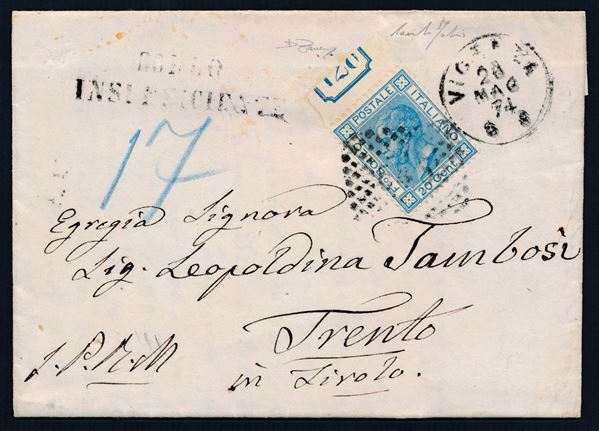 BOLLO
INSUFFICIENTE
17
POSTALE ITALIANO
20 Cent.
VICENZA
28
MAG
74
Egregia Signora
Sig. Leopoldina Tambosi
Trento
in Tirolo.